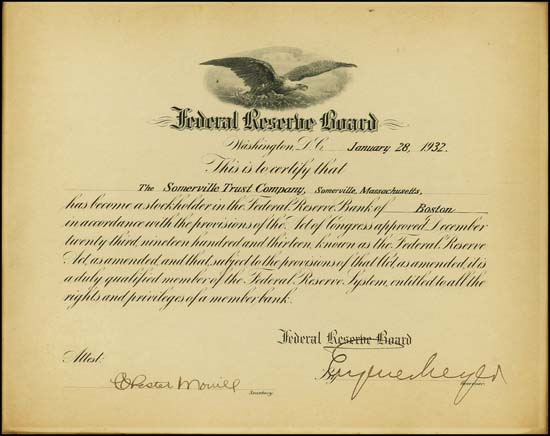 Federal Reserve Board
Washington, D.C. January 28, 1932.
This is to certify that
The Somerville Trust Company, Somerville, Massachusetts,
has become a stockholder in the Federal Reserve Bank of Boston
in accordance with the provisions of the Act of Congress approved December
twenty third, nineteen hundred and thirteen, known as the Federal Reserve
Act, as amended, and that, subject to the provisions of that Act, as amended, it is
a duly qualified member of the Federal Reserve System, entitled to all the
rights and privileges of a member bank.
Federal Reserve Board
Attest:
Chester Morrill
Secretary.
By Eugene Meyer
Governor.